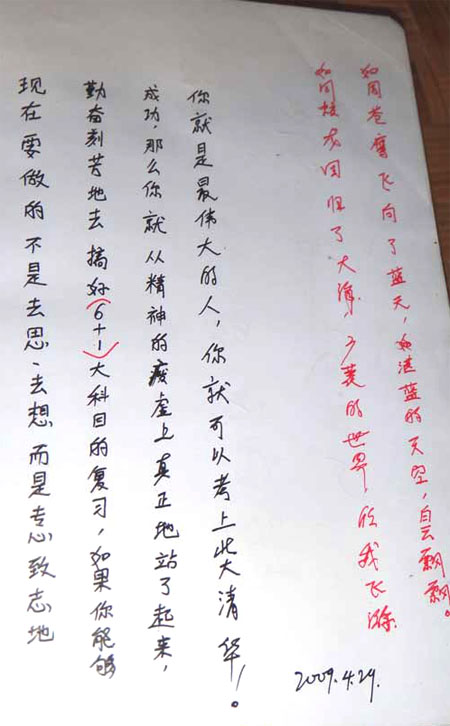 现在要做的不是去思、去想而是专心致志地
勤奋刻苦地去搞好(6+1)大科目的复习,如果你能够
成功,那么你就从精神的废虚上真正地站了起来,
你就是最伟大的人,你就可以考上北大清华!。
如同蛟龙回归了大海,多美的世界,任我飞游
如同苍鹰飞向了蓝天,湛蓝的天空,白云飘飘。
2009.4.29.